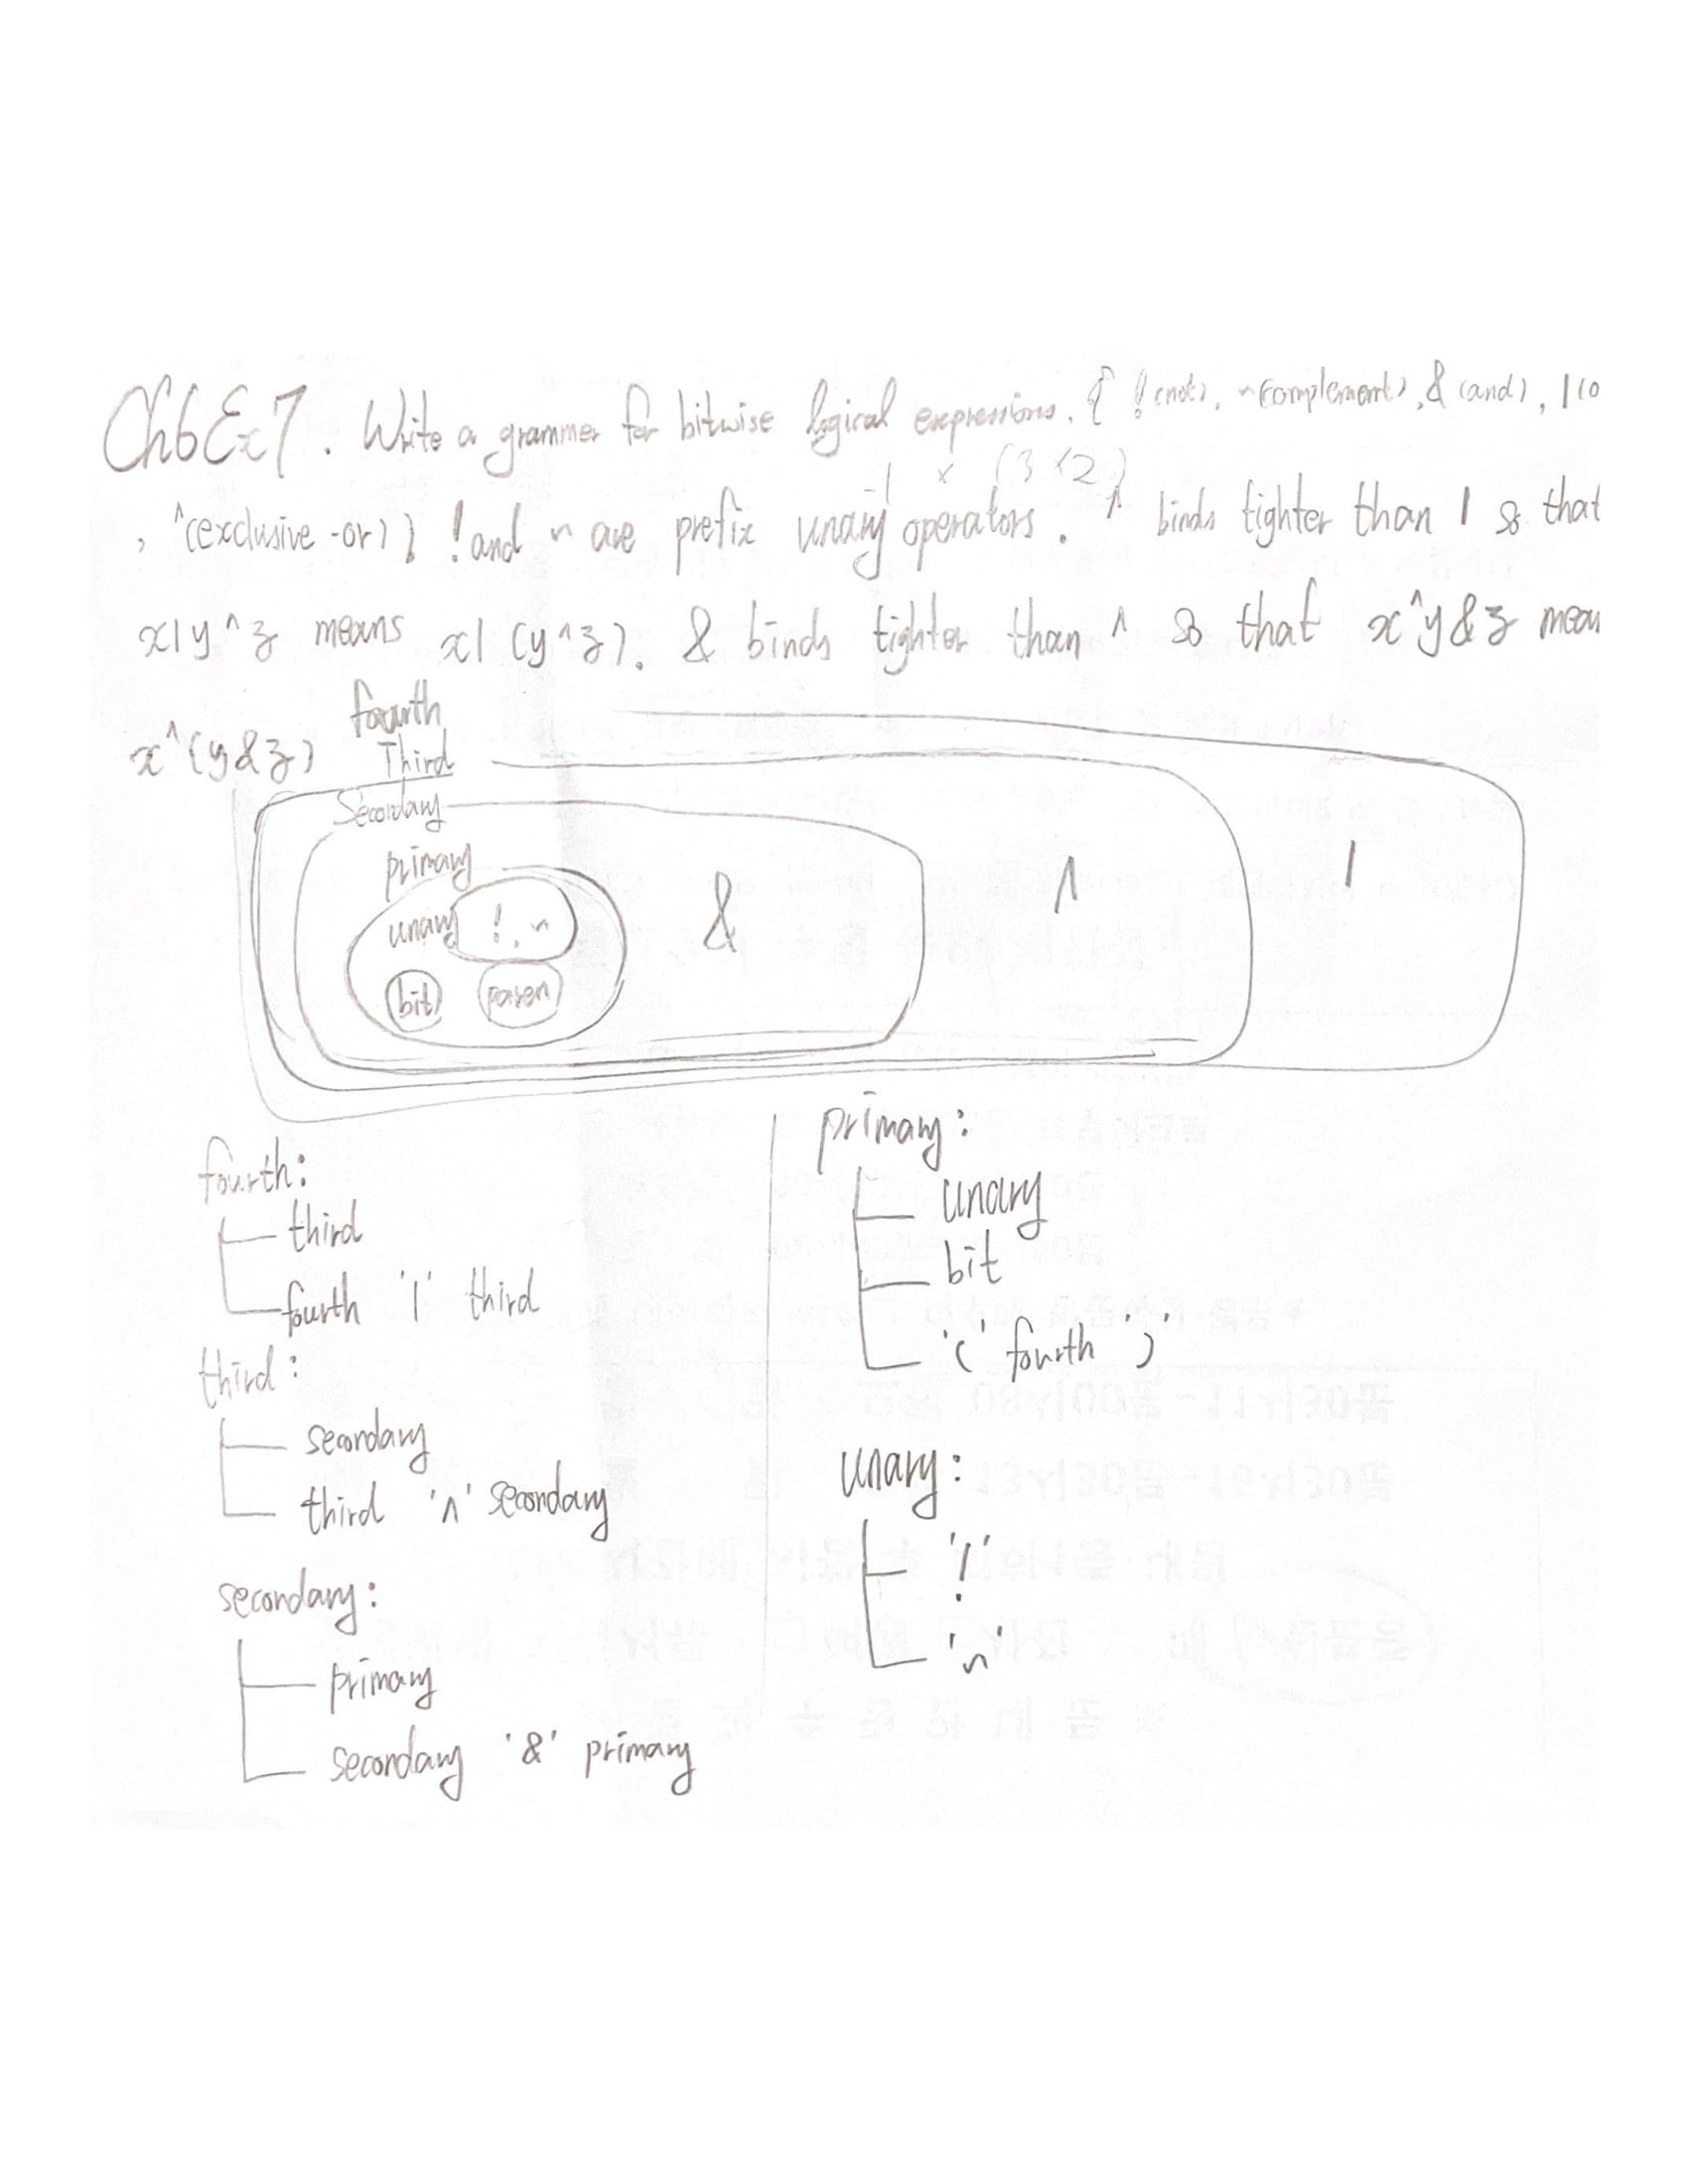 Ch6Ex7. Write a grammer for bitwise logical expressions. { !(not), ~(complement), & (and), |(o
-1 x (3 < 2)
, ^(exclusive-or) } ! and ~ are prefix unary operators. ^ binds tighter than | so that
x|y^z means x|(y^z). & binds tighter than ^ so that x^y&z mean
x^(y&z)
fourth
Third
Secondary
primary
unary !, ~
bit paren
& ^ |
fourth:
third
fourth '|' third
third:
secondary
third '^' secondary
secondary:
primary
secondary '&' primary
primary:
unary
bit
'(' fourth ')'
unary:
'!'
'~'